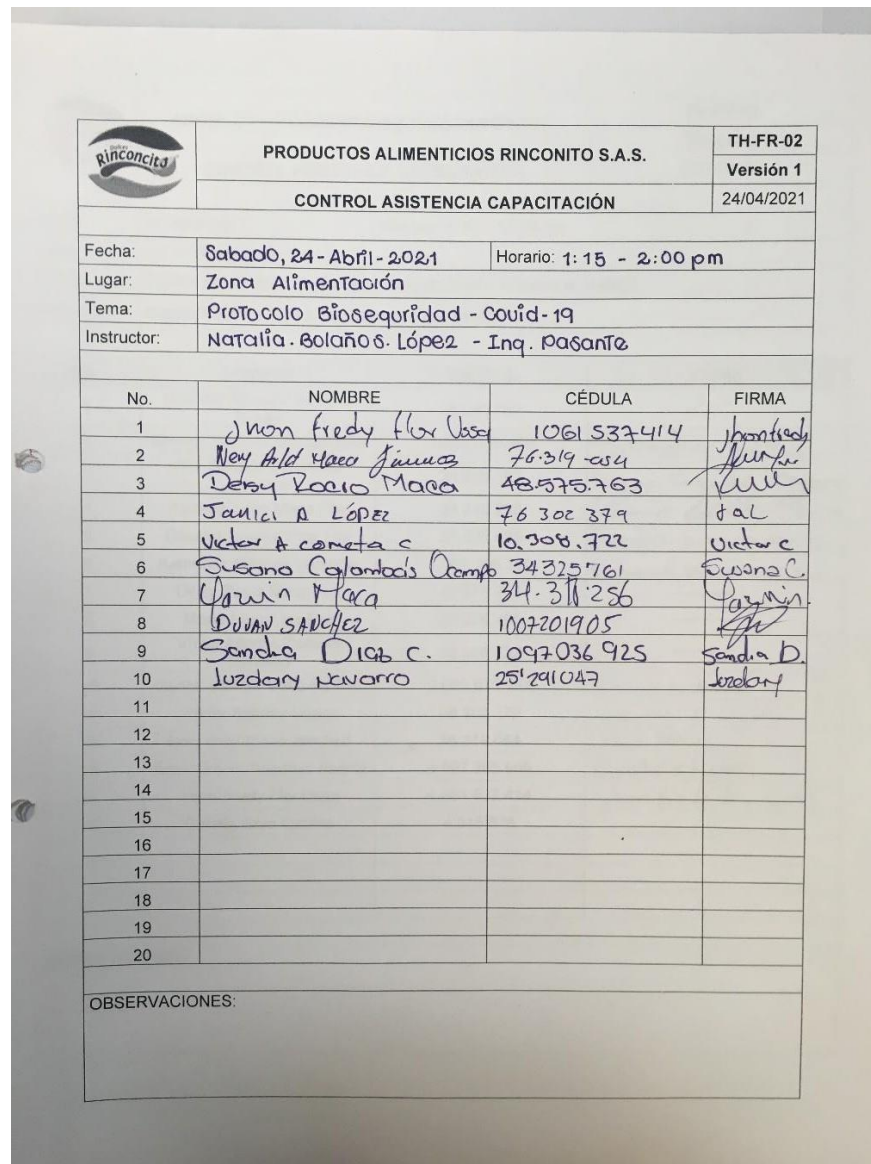 Dulces
Rinconcito
PRODUCTOS ALIMENTICIOS RINCONITO S.A.S.
TH-FR-02
Versión 1
CONTROL ASISTENCIA CAPACITACIÓN
24/04/2021
Fecha: Sabado, 24-Abril-2021 Horario: 1:15 - 2:00 pm
Lugar: Zona Alimentación
Tema: Protocolo Bioseguridad - Covid-19
Instructor: Natalia. Bolaños. López - Ing. Pasante
No. NOMBRE CÉDULA FIRMA
1 Jhon fredy flor Ussa 1061537414 Jhonfredy
2 Maca 76.319
3 Deisy Rocio Maca 48.575.763
4 A López 76 302 379 JaL
5 Victor A cometa c 10.308.722 Victor c
6 Susana Ocampo 34325761 Susana C.
7 Yazmin Maca Yazmin
8 DUVAN SANCHEZ 1007201905
9 Sandra Diaz C. 1097036925 Sandra D.
10 luzdary Navarro 25'291047 luzdary
11
12
13
14
15
16
17
18
19
20
OBSERVACIONES: